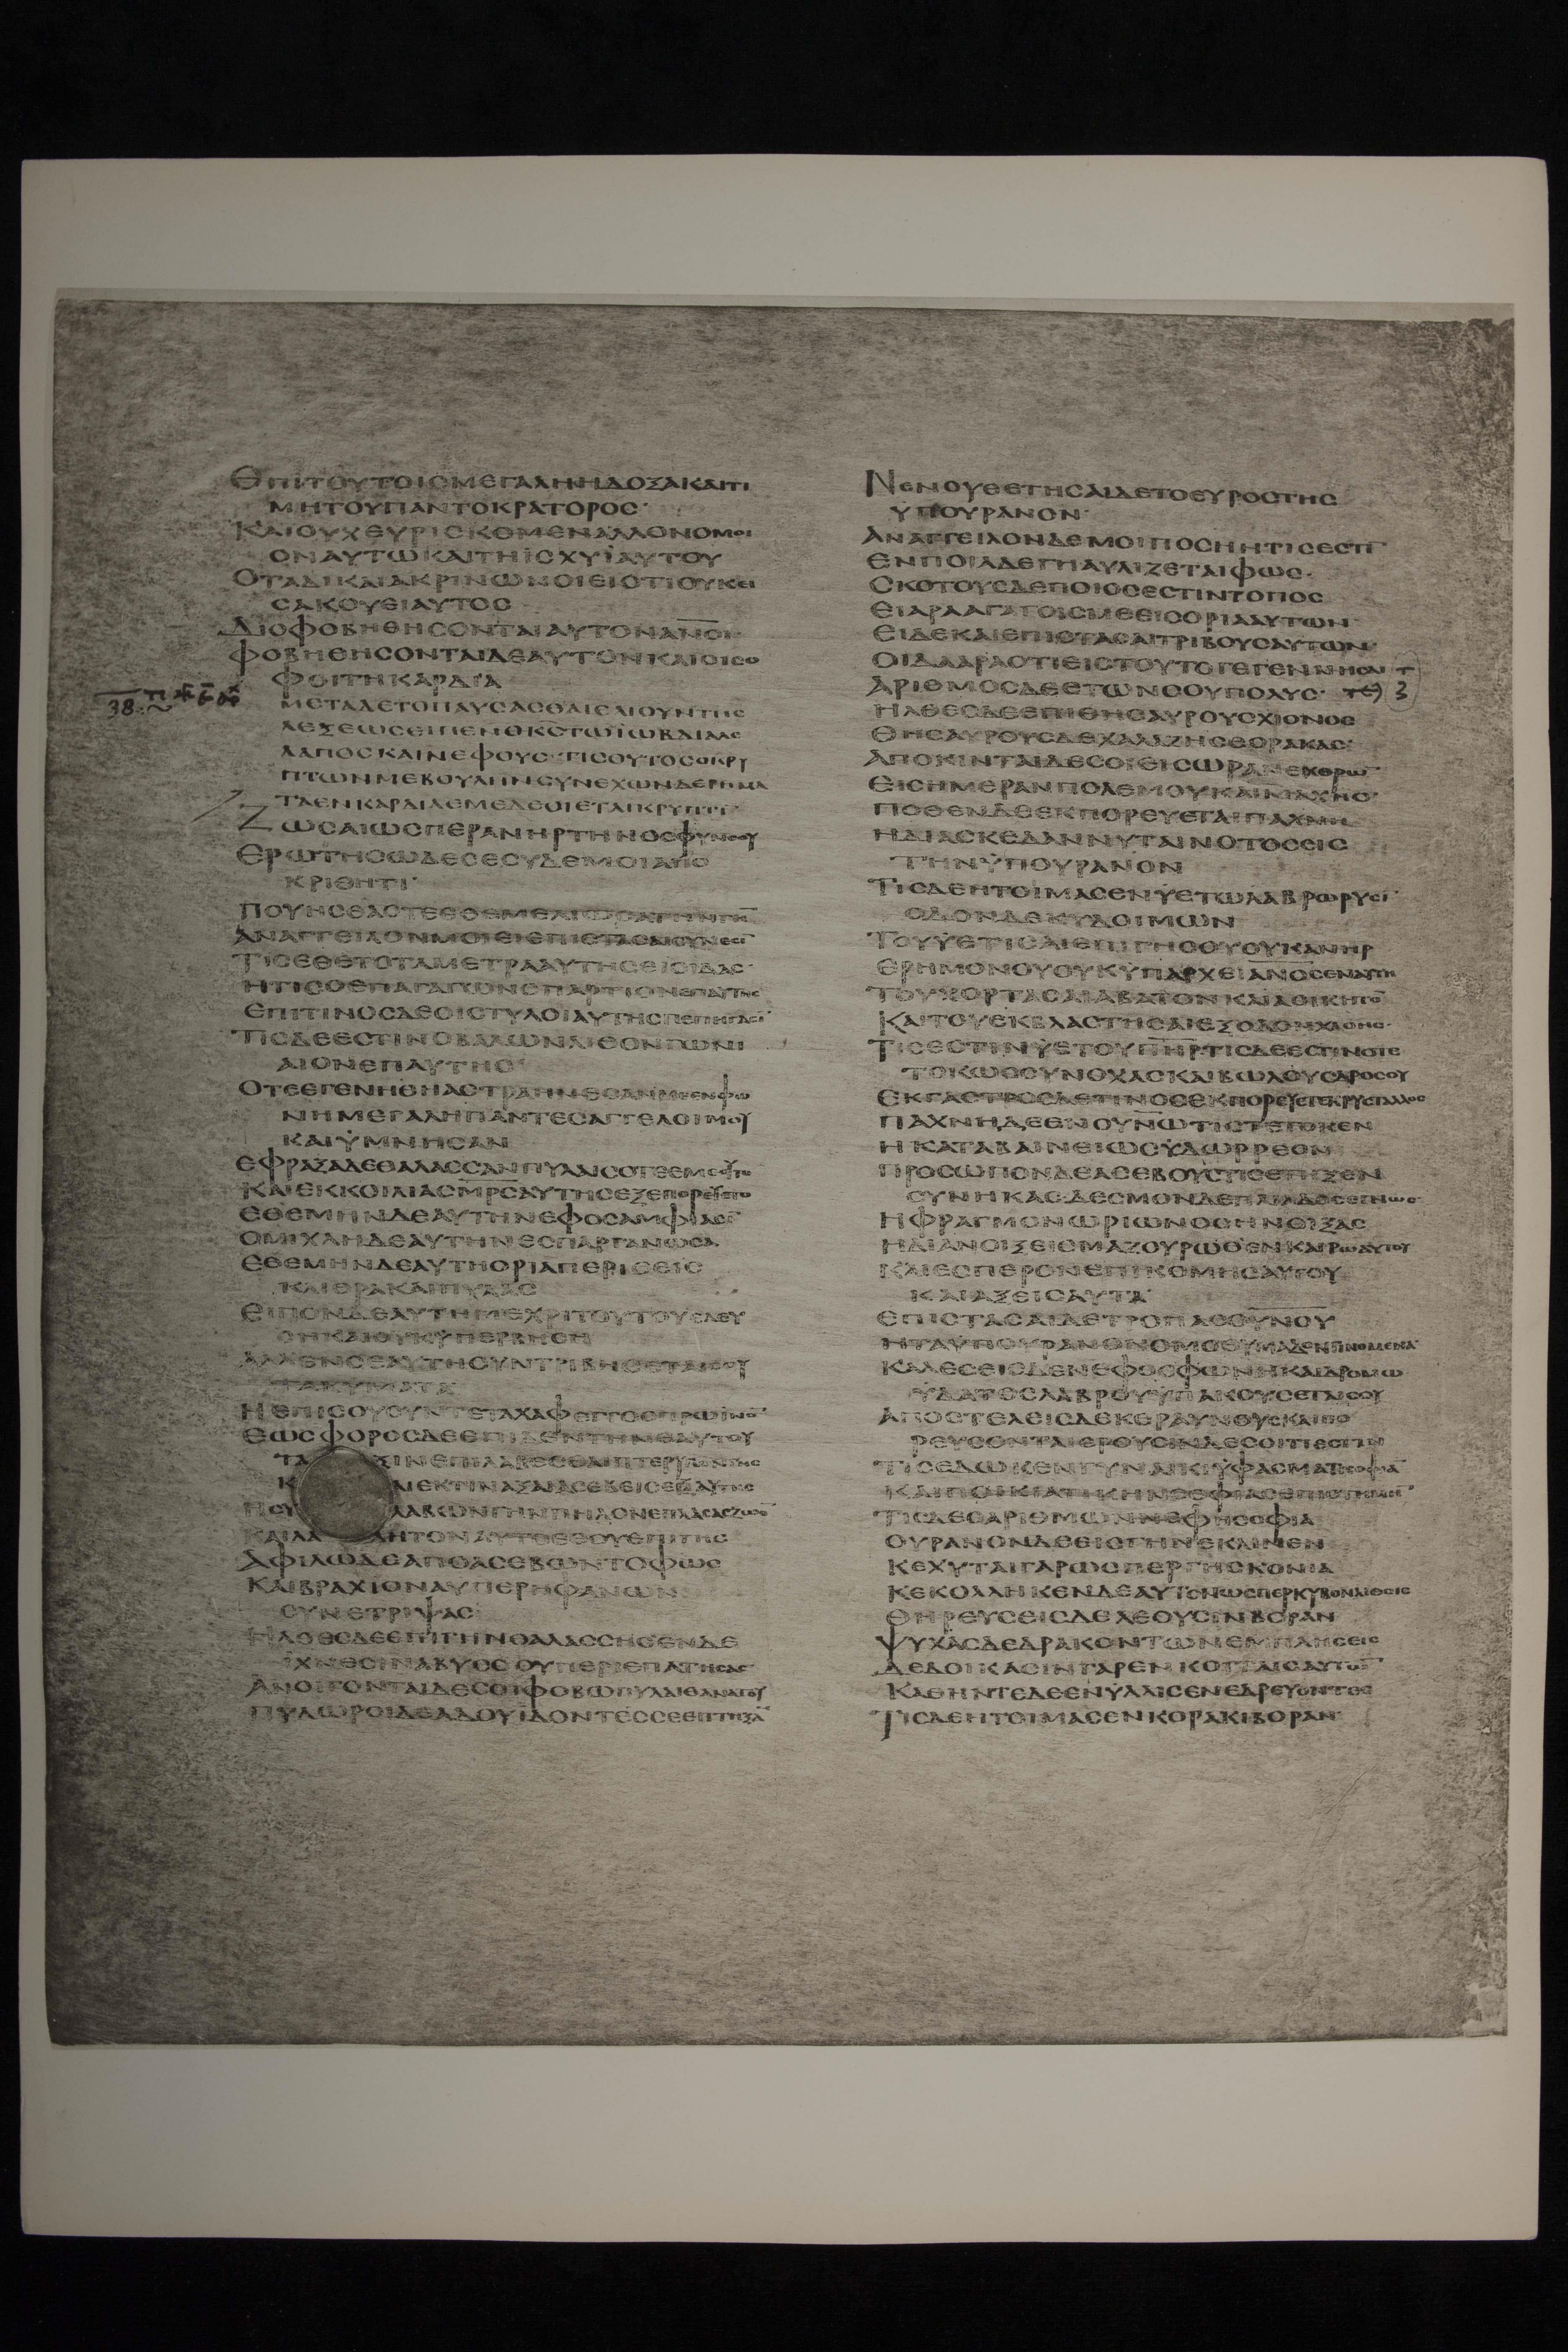 ΕΠΙΤΟΥΤΟΙСΜΕΓΑΛΗΗΔΟΞΑΚΑΙΤΙ
ΜΗΤΟΥΠΑΝΤΟΚΡΑΤΟΡΟС·
ΚΑΙΟΥΧΕΥΡΙСΚΟΜΕΝΑΛΛΟΝΟΜΟΙ
ΟΝΑΥΤΩΚΑΙΤΗΙСΧΥΪΑΥΤΟΥ
ΟΤΑΔΙΚΑΙΑΚΡΙΝΩΝΟΙΕΙСΤΙΟΥΚΕΙ
СΑΚΟΥΕΙΑΥΤΟС
ΔΙΟΦΟΒΗΘΗСΟΝΤΑΙΑΥΤΟΝΑΝΟΙ·
ΦΟΒΗΘΗСΟΝΤΑΙΔΕΑΥΤΟΝΚΑΙΟΙСΟ
ΦΟΙΤΗΚΑΡΔΙΑ
38
ΜΕΤΑΔΕΤΟΠΑΥСΑСΘΑΙΕΛΙΟΥΝΤΗС
ΛΕΞΕΩСΕΙΠΕΝΟΚСΤΩΪΩΒΔΙΑΛΑΙ
ΛΑΠΟСΚΑΙΝΕΦΟΥС·ΤΙСΟΥΤΟСΟΚΡΥ
ΠΤΩΝΜΕΒΟΥΛΗΝСΥΝΕΧΩΝΔΕΡΗΜΑ
ΤΑΕΝΚΑΡΔΙΑΕΜΕΔΕΟΙΕΤΑΙΚΡΥΠΤΙ
ΖΩСΑΙΩСΠΕΡΑΝΗΡΤΗΝΟСΦΥΝСΟΥ
ΕΡΩΤΗСΩΔΕСΕСΥΔΕΜΟΙΑΠΟ
ΚΡΙΘΗΤΙ·
ΠΟΥΗСΘΑСΤΕΘΕΜΕΛΙΟΥΝΜΕΤΗΝΓΗ
ΑΝΑΓΓΕΙΛΟΝΜΟΙΕΙΕΠΙСΤΑСΑΙСΥΝΕСΙ
ΤΙСΕΘΕΤΟΤΑΜΕΤΡΑΑΥΤΗСΕΙΟΙΔΑС·
ΗΤΙСΟΕΠΑΓΑΓΩΝСΠΑΡΤΙΟΝΕΠΑΥΤΗС
ΕΠΙΤΙΝΟСΔΕΟΙСΤΥΛΟΙΑΥΤΗСΠΕΠΗΓΑСΙ·
ΤΙСΔΕΕСΤΙΝΟΒΑΛΩΝΛΙΘΟΝΓΩΝΙ
ΑΙΟΝΕΠΑΥΤΗС·
ΟΤΕΕΓΕΝΗΘΗΑСΤΡΑΗΝΕСΑΝΜΕΕΝΦΩ
ΝΗΜΕΓΑΛΗΠΑΝΤΕСΑΓΓΕΛΟΙΜΟΥ
ΚΑΙΫΜΝΗСΑΝ
ΕΦΡΑΞΑΔΕΘΑΛΑССΑΝΠΥΛΑΙСΟΤΕΕΜΕΟΥΤΟ
ΚΑΙΕΚΚΟΙΛΙΑСΜΡСΑΥΤΗСΕΞΕΠΟΡΕΥΕΤΟ
ΕΘΕΜΗΝΔΕΑΥΤΗΝΕΦΟСΑΜΦΙΑСΙ
ΟΜΙΧΛΗΔΕΑΥΤΗΝΕСΠΑΡΓΑΝΩСΑ
ΕΘΕΜΗΝΔΕΑΥΤΗΟΡΙΑΠΕΡΙΘΕΙС
ΚΛΙΘΡΑΚΑΙΠΥΛΑС
ΕΙΠΟΝΔΕΑΥΤΗΜΕΧΡΙΤΟΥΤΟΥΕΛΕΥ
СΗΚΑΙΟΥΚΥΠΕΡΒΗСΗ
ΑΛΛΕΝСΕΑΥΤΗСΥΝΤΡΙΒΗСΕΤΑΙСΟΥ
ΤΑΚΥΜΑΤΑ
ΗΕΠΙСΟΥСΥΝΤΕΤΑΧΑΦΕΓΓΟСΠΡΩΪΝΟ
ΕΩСΦΟΡΟСΔΕΕΠΙΔΕΝΤΗΝΕΑΥΤΟΥ
ΤΑ ΞΙΝΕΠΙΛΑΒΕСΘΑΙΠΤΕΡΥΓΩΝΓΗС
Κ ΑΙΕΚΤΙΝΑΞΑΙΑСΕΒΕΙСΕΞΑΥΤΗС
ΗСΥ ΛΑΒΩΝΓΗΝΠΗΛΟΝΕΠΛΑСΑСΖΩΟ
ΚΑΙΛΑ ΗΤΟΝΑΥΤΟΕΘΟΥΕΠΙΓΗС
ΑΦΙΛΩΔΕΑΠΟΑСΕΒΩΝΤΟΦΩС
ΚΑΙΒΡΑΧΙΟΝΑΥΠΕΡΗΦΑΝΩΝ
СΥΝΕΤΡΙΨΑС
ΗΛΘΕСΔΕΕΠΙΓΗΝΘΑΛΑССΗСΕΝΔΕ
ΪΧΝΕСΙΝΑΒΥССΟΥΠΕΡΙΕΠΑΤΗСΑС·
ΑΝΟΙΓΟΝΤΑΙΔΕСΟΙΦΟΒΩΠΥΛΑΙΘΑΝΑΤΟΥ
ΠΥΛΩΡΟΙΔΕΑΔΟΥΪΔΟΝΤΕССΕΕΠΤΗΞΑ
ΝΕΝΟΥΘΕΤΗСΑΙΔΕΤΟΕΥΡΟСΤΗС
ΫΠΟΥΡΑΝΟΝ·
ΑΝΑΓΓΕΙΛΟΝΔΕΜΟΙΠΟСΗΗΤΙСΕСΤΙ
ΕΝΠΟΙΑΔΕΓΗΑΥΛΙΖΕΤΑΙΦΩС·
СΚΟΤΟΥСΔΕΠΟΙΟСΕСΤΙΝΤΟΠΟС
ΕΙΑΡΑΑΓΑΓΟΙСΜΕΕΙСΟΡΙΑΑΥΤΩΝ·
ΕΙΔΕΚΑΙΕΠΙСΤΑСΑΙΤΡΙΒΟΥСΑΥΤΩΝ
ΟΙΔΑΑΡΑΟΤΙΕΙСΤΟΥΤΟΓΕΓΕΝΝΗСΑΙ
ΑΡΙΘΜΟСΔΕΕΤΩΝСΟΥΠΟΛΥС· 3
ΗΛΘΕСΔΕΕΠΙΘΗСΑΥΡΟΥСΧΙΟΝΟС
ΘΗСΑΥΡΟΥСΔΕΧΑΛΑΖΗСΕΟΡΑΚΑС·
ΑΠΟΚΙΝΤΑΙΔΕСΟΙΕΙСΩΡΑΝΕΧΘΡΩ
ΕΙСΗΜΕΡΑΝΠΟΛΕΜΟΥΚΑΙΜΑΧΗС·
ΠΟΘΕΝΔΕΕΚΠΟΡΕΥΕΤΑΙΠΑΧΝΗ
ΗΔΙΑСΚΕΔΑΝΝΥΤΑΙΝΟΤΟСΕΙС
ΤΗΝΫΠΟΥΡΑΝΟΝ
ΤΙСΔΕΗΤΟΙΜΑСΕΝΫΕΤΩΛΑΒΡΩΡΥСΙ·
ΟΔΟΝΔΕΚΥΔΟΙΜΩΝ
ΤΟΥΫΕΤΙСΑΙΕΠΙΓΗСΟΥΟΥΚΑΝΗΡ
ΕΡΗΜΟΝΟΥΟΥΚΫΠΑΡΧΕΙΑΝΟСΕΝΑΥΤΗ
ΤΟΥΧΟΡΤΑСΑΙΑΒΑΤΟΝΚΑΙΑΟΙΚΗΤΟ
ΚΑΙΤΟΥΕΚΒΛΑСΤΗСΑΙΕΞΟΔΟΝΧΛΟΗС·
ΤΙСΕСΤΙΝΫΕΤΟΥΠΗΡΤΙСΔΕΕСΤΙΝΟΤΕ
ΤΟΚΩССΥΝΟΧΑСΚΑΙΒΩΛΟΥСΔΡΟСΟΥ
ΕΚΓΑСΤΡΟСΔΕΤΙΝΟСΕΚΠΟΡΕΥΕΤΕΚΡΥСΤΑΛΛΟС
ΠΑΧΝΗΔΕΕΝΟΥΝΩΤΙСΤΕΤΟΚΕΝ
ΗΚΑΤΑΒΑΙΝΕΙΩСΫΔΩΡΡΕΟΝ
ΠΡΟСΩΠΟΝΔΕΑСΕΒΟΥСΤΙСΕΠΗΞΕΝ
СΥΝΗΚΑСΔΕСΜΟΝΔΕΠΛΙΑΔΟСΕΓΝΩС·
ΗΦΡΑΓΜΟΝΩΡΙΩΝΟСΗΝΟΙΞΑС
ΗΔΙΑΝΟΙΞΕΙСΜΑΖΟΥΡΩΘΕΝΚΑΙΡΩΑΥΤΟΥ
ΚΑΙΕСΠΕΡΟΝΕΠΙΚΟΜΗСΑΥΤΟΥ
ΚΑΙΑΞΕΙСΑΥΤΑ
ΕΠΙСΤΑСΑΙΔΕΤΡΟΠΑСΟΥΝΟΥ
ΗΤΑΫΠΟΥΡΑΝΟΝΟΜΟΘΥΜΑΔΟΝΓΙΝΟΜΕΝΑ
ΚΑΛΕСΕΙСΔΕΝΕΦΟСΦΩΝΗΚΑΙΔΡΟΜΩ
ΫΔΑΤΟСΛΑΒΡΟΥΫΠΑΚΟΥСΕΤΑΙСΟΥ
ΑΠΟСΤΕΛΕΙСΔΕΚΕΡΑΥΝΟΥСΚΑΙΠΟ
ΡΕΥСΟΝΤΑΙΕΡΟΥСΙΝΔΕСΟΙΤΙΕСΤΙΝ
ΤΙСΕΔΩΚΕΝΓΥΝΑΙΚΙΫΦΑСΜΑΤΟСΟΦΙΑ
ΚΑΙΠΟΙΚΙΛΤΙΚΗΝΕΠΙСΤΗΜΗ
ΤΙСΔΕΟΑΡΙΘΜΩΝΝΕΦΗСΟΦΙΑ
ΟΥΡΑΝΟΝΔΕΕΙСΓΗΝΕΚΛΙΝΕΝ
ΚΕΧΥΤΑΙΓΑΡΩСΠΕΡΓΗСΚΟΝΙΑ
ΚΕΚΟΛΛΗΚΕΝΔΕΑΥΤΟΝΩСΠΕΡΚΥΒΟΝΛΙΘΟΙС
ΘΗΡΕΥСΕΙСΔΕΛΕΟΥСΙΝΒΟΡΑΝ
ΨΥΧΑСΔΕΔΡΑΚΟΝΤΩΝΕΜΠΛΗСΕΙС
ΔΕΔΟΙΚΑСΙΝΓΑΡΕΝΚΟΙΤΑΙСΑΥΤΩ
ΚΑΘΗΝΤΕΔΕΕΝΫΛΑΙСΕΝΕΔΡΕΥΟΝΤΕС
ΤΙСΔΕΗΤΟΙΜΑСΕΝΚΟΡΑΚΙΒΟΡΑΝ·